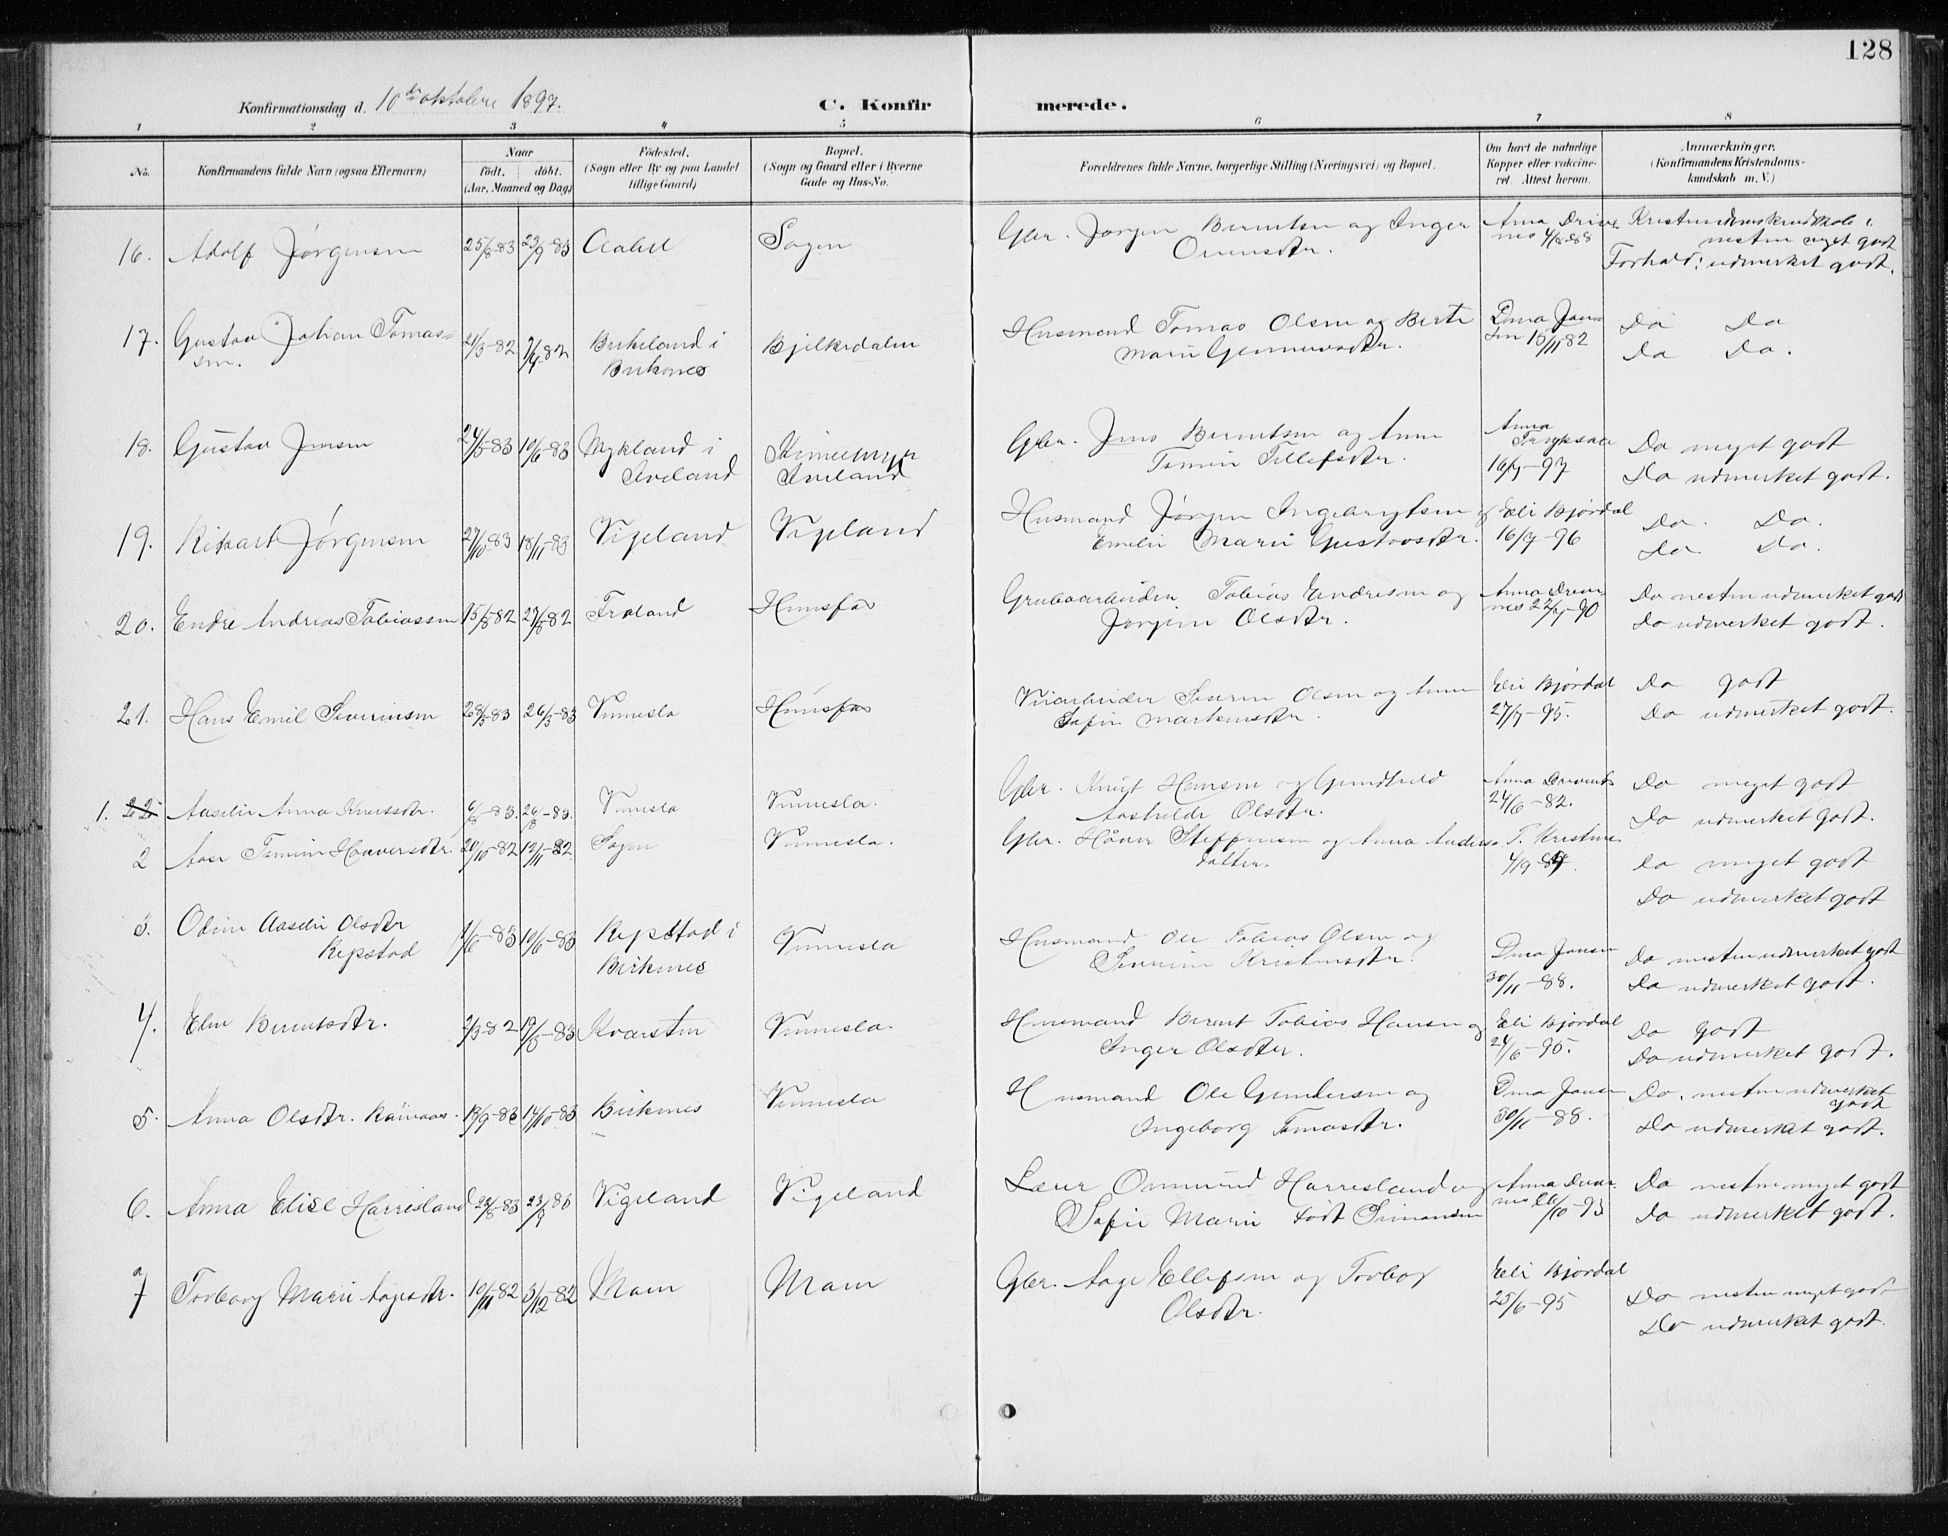 128
Konfirmationsdag d. 10de oktober 1897.
C. Konfirmerede.
1 2 3 4 5 6 7 8
No.
Konfirmandens fulde Navn (ogsaa Efternavn)
Naar
födt. döbt.
(Aar, Maaned og Dag)
Födested.
(Sogn eller By og paa Landet
tillige Gaard)
Bopæl.
(Sogn og Gaard eller i Byerne
Gade og Hus-No.
Forældrenes fulde Navne, borgerlige Stilling (Næringsvei) og Bopæl.
Om havt de naturlige
Kopper eller vakcine-
ret. Attest herom.
Anmærkninger.
(Konfirmandens Kristendoms-
kundskab m. V.)
16. Adolf Jørgensen 25/8-83 23/9-83 Aabel Sogen
Gbr. Jørgen Berentsen og Inger
Omundsdtr.
4/8-88
nesten meget godt
Forhold: udmerket godt.
17. Gustav Johan Tomas-
sen. 21/3-82 Birkeland i
Birkenes
Husmand Tomas Olsen og Berte
Marie
Dina Jan
sen 15/11 82
Do Do
Do Do.
18. Gustav Jensen 24/5-83 10/6-83 Mykland i
Iveland
Iveland
Gbr. Jens Berentsen og Anne
Tomine Tellefsdtr.
Anna
16/7-97
Do meget godt
Do udmerket godt.
19. Rikart Jørgensen 27/10-83 18/11-83 Vigeland Vigeland
Husmand Jørgen Ingebrigtsen og
Emelie Marie Gustavsdtr.
Eli Bjørdal
16/7-96
Do. Do.
Do Do.
20. Endre Andreas Tobiassen 15/8-82 27/8-82 Froland Hunsfos
Grubearbeider Tobias Endresen og
Jørgine Olsdtr.
Do nesten udmerket godt
Do udmerket godt.
21. Hans Emil Severinsen 28/3-83 26/3-83 Vennesla Hunsfos
Veiarbeider Severin Olsen og Anne
Sofie Martensdtr.
Eli Bjørdal
27/7-95.
Do godt
Do udmerket godt.
1. 22 Aaselie Anna Knutsdtr. 6/8-83. 26/8-83. Vennesla Vennesla.
Gbr. Knut Hansen og Gundhild
Aashilde Olsdtr.
24/6-82.
Do meget godt
Do udmerket godt.
2 Aase Tomine Haaversdtr. 20/10-82 12/11-82 Sogen Vennesla.
Gbr. Håver Steffensen og Anna Anders-
datter.
T. Kristense
4/9-84.
Do meget godt
Do udmerket godt
3. Oline Aaselie Olsdtr
Repstad 1/6-83 10/6-83 Repstad i
Birkenes Vennesla
Husmand Ole Tobias Olsen og
Severine Kristensdtr.
Dina Jansen
30/11-88.
Do nesten udmerket godt
Do udmerket godt.
4. Elen Berentsdtr. Kvarsten Vennesla.
Husmand Berent Tobias Hansen og
Inger Olsdtr.
Eli Bjørdal
24/6-95.
Do godt
Do udmerket godt.
5. Anna Olsdtr. 13/9-83 14/10-83 Birkenes Vennesla
Husmand Ole Gundersen og
Ingeborg Tomasdtr.
Dina Jansen
30/11-88.
Do. nesten udmerket
godt
Do udmerket godt.
6. Anna Elise Harrisland 23/9 83 Vigeland Vigeland
Lærer Ommund Harrisland og
Sofie Marie født Simonsen
Do nesten meget godt
Do udmerket godt.
7 Torborg Marie Aagesdtr. 10/11-82 3/12-82 Moen Moen
Gbr. Aage Ellefsen og Torborg
Olsdtr.
Eli Bjørdal
25/6-95
Do nesten meget godt
Do udmerket godt.